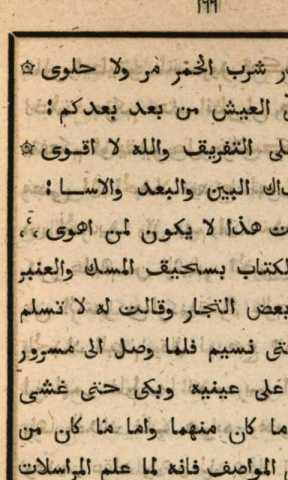 ١٦٦
شرب الخمر مر ولا حلوى ۞
العيش من بعد بعدكم :
التفريق والله لا اقوى ۞
البين والبعد والاسا :
هذا لا يكون لمن اهوى
بسحيق المسك والعنبر
التجار وقالت له لا تسلم
نسيم فلما وصل الى مسرور
على عينيه وبكى حتى غشى
ما كان منهما واما ما كان من
المواصف فانه لما علم المراسلات